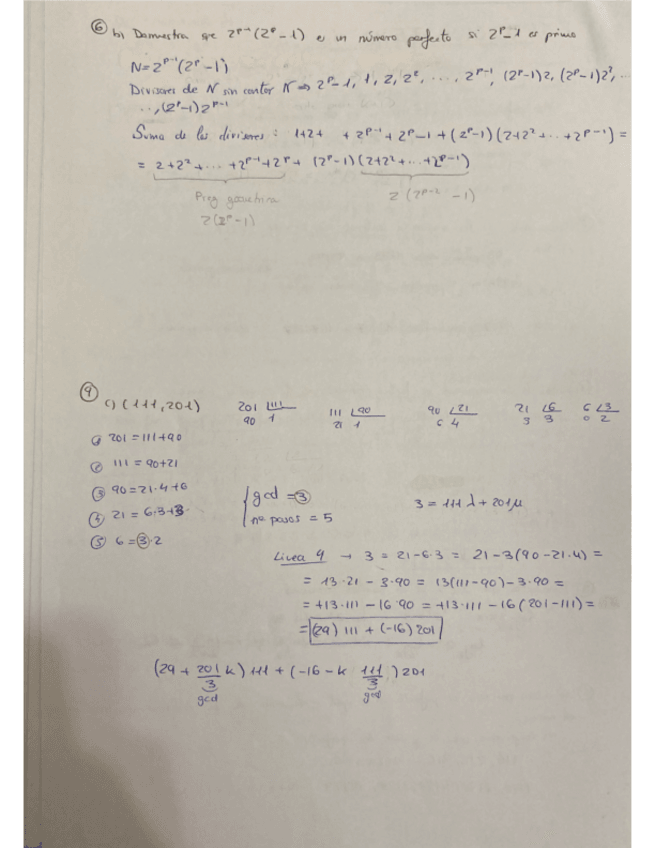 ⑥ b) Demuestra que 2^{p-1}(2^p - 1) es un número perfecto si 2^p - 1 es primo
N = 2^{p-1}(2^p - 1)
Divisores de N sin contar N ⇒ 2^p - 1, 1, 2, 2^2, ..., 2^{p-1}, (2^p-1)2, (2^p-1)2^2, ..
.., (2^p-1)2^{p-1}
Suma de los divisores: 1+2+ +2^{p-1} + 2^p - 1 + (2^p-1)(2+2^2+..+2^{p-1}) =
= 2+2^2+...+2^{p-1}+2^p + (2^p-1)(2+2^2+...+2^{p-1})
Prog geométrica 2(2^{p-2} - 1)
2(2^p-1)
④
c) (111, 201) 201 |111 111 |90 90 |21 21 |6 6 |3
90 1 21 1 6 4 3 3 0 2
① 201 = 111+90
② 111 = 90+21
③ 90 = 21·4+6 { gcd = ③ 3 = 111 λ + 201 μ
④ 21 = 6·3+3 nº pasos = 5
⑤ 6 = ③·2
Línea 4 → 3 = 21-6·3 = 21-3(90-21·4) =
= 13·21 - 3·90 = 13(111-90) - 3·90 =
= +13·111 - 16·90 = +13·111 - 16(201-111) =
= (29) 111 + (-16) 201
(29 + 201/3 k) 111 + (-16 - k 111/3) 201
gcd gcd